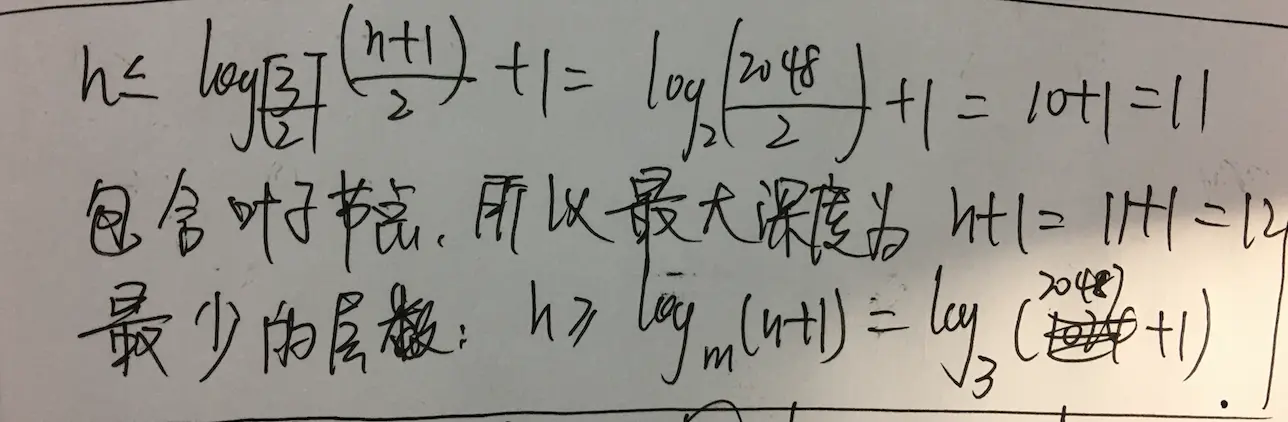 h≤ log⌈3/2⌉((n+1)/2) +1 = log₂(2048/2) +1 = 10+1 = 11
包含叶子节点, 所以最大深度为 h+1 = 11+1 = 12
最少的层数: h≥ logₘ(n+1) = log₃(2048+1).